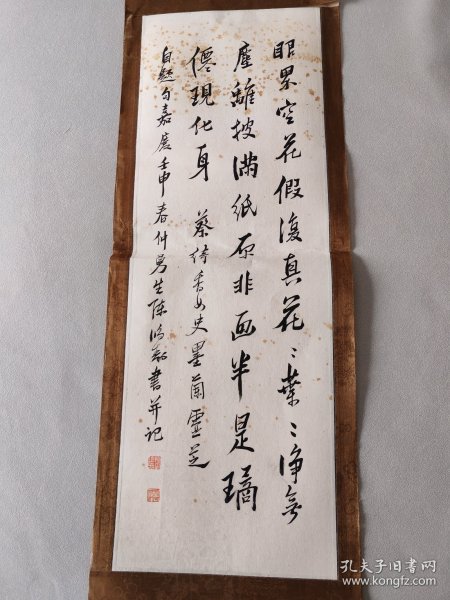 眼界空花假復真花〻葉〻淨無
塵離披滿紙原非画半是璚
僊現化身 蔡綺香女史墨蘭靈芝
自題句嘉 壬申春仲 生陈鸿 書并記
孔夫子旧书网
www.kongfz.com